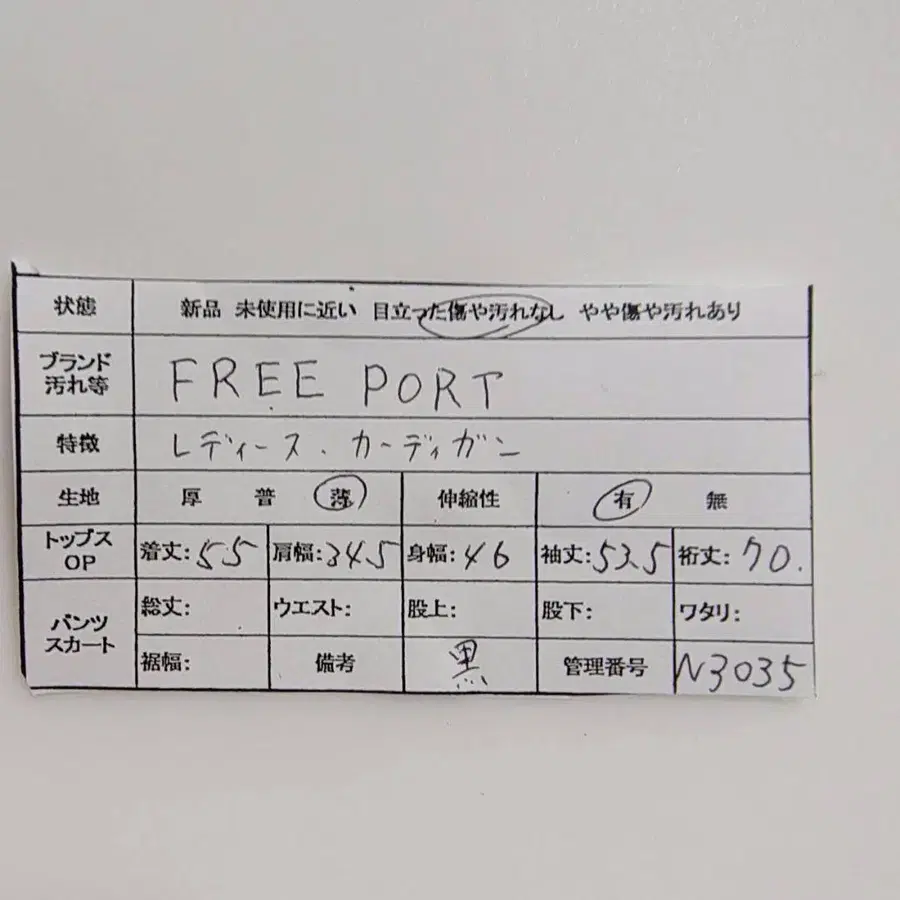 状態 新品 未使用に近い 目立った傷や汚れなし やや傷や汚れあり
ブランド
汚れ等 FREE PORT
特徴 レディース．カーディガン
生地 厚 普 薄 伸縮性 有 無
トップス
OP 着丈:55 肩幅:34.5 身幅:46 袖丈:53.5 裄丈:70.
パンツ
スカート 総丈: ウエスト: 股上: 股下: ワタリ:
裾幅: 備考 黒 管理番号 N3035